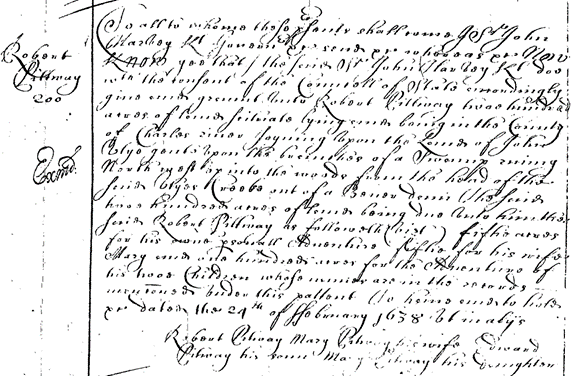 Robert
Pittway
200
Exmd.
To all to whome these psents shall come I Sr John
Harvey Kt Govenor &c send &c whereas &c Now
Know yee that I the said Sr John Harvey Kt doe
with the consent of the Councell of State accordingly
give and graunt unto Robert Pittway twoe hundred
acres of land scituate lying and being in the County
of Charles River Joyning upon the Land of John
Utye gent upon the branches of a Swamp runing
North west up into the woods from the head of the
said Utyes Creeke out of a Bever dam the said
twoe hundred acres of land being due unto him the
said Robert Pittway as followeth (vizt) fiftie acres
for his owne psonall Adventure fiftie for his wife
Mary and one hundred acres for the Adventure of
his twoe Children whose names are in the records
mentioned under this pattent To have and to hold
&c dated the 24th of ffebruary 1638 Ut in aliis
Robert Pitway Mary Pitway his wife Edward
Pitway his sonn Mary Pitway his daughter